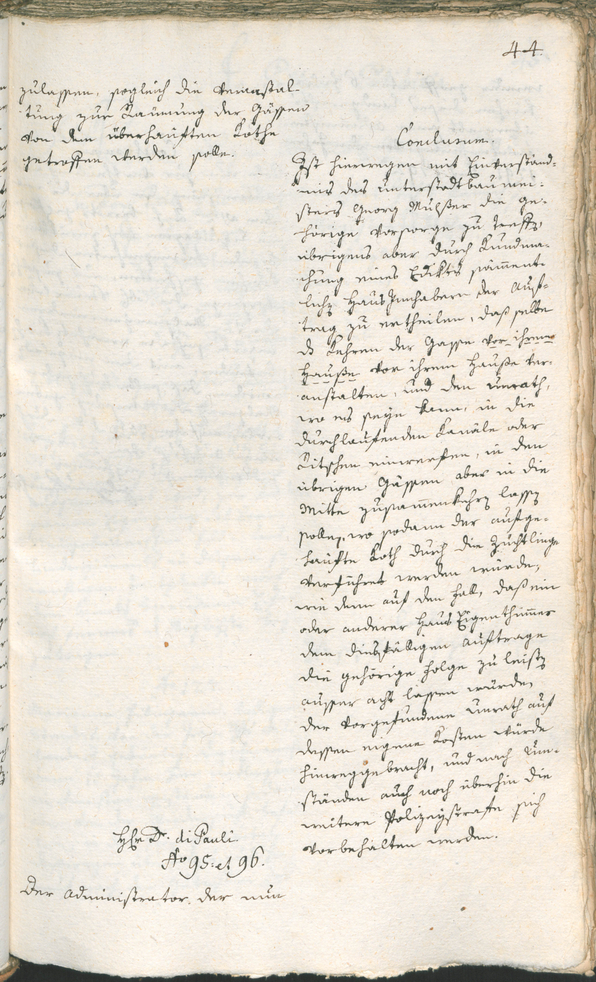 44.
zulassen, sogleich die Veranstal-
tung zur Räumung der Gässen
von dem überhäuften Kothe
getroffen werden solle.
Conclusum.
Ist hinwegen mit Einverständ-
nis des unterstadtbaumei-
sters Georg Mußer die ge-
hörige Vorsorge zu treffen
übrigens aber durch Kundma-
chung eines Edikts sämment-
lichen Haus Innhabern der Auf-
trag zu ertheilen, daß selbe
das Kehren der Gasse vor ihrem
Hauße vor ihrem Hauße ver-
anstalten, und den Unrath,
wo es seyn kann, in die
durchlaufenden Kanäle oder
Ritschen einwerfen, in den
übrigen Gässen aber in die
Mitte zusammenkehren lassen
sollen, wo sodann der aufge-
häufte Koth durch die Züchtlinge
verführet werden würde,
wie dann auf den Fall, daß ein
oder anderer Haus Eigenthümer
dem diesfälligen Auftrage
die gehörige Folge zu leisten
ausser acht lassen würde,
der vorgefundene Unrath auf
dessen eigene Kosten würde
hinweggebracht, und nach Um-
ständen auch noch überhin die
weitere Polizeystrafe sich
vorbehalten werden.
di Pauli
No 95. et 96.
Der Administrator der nun